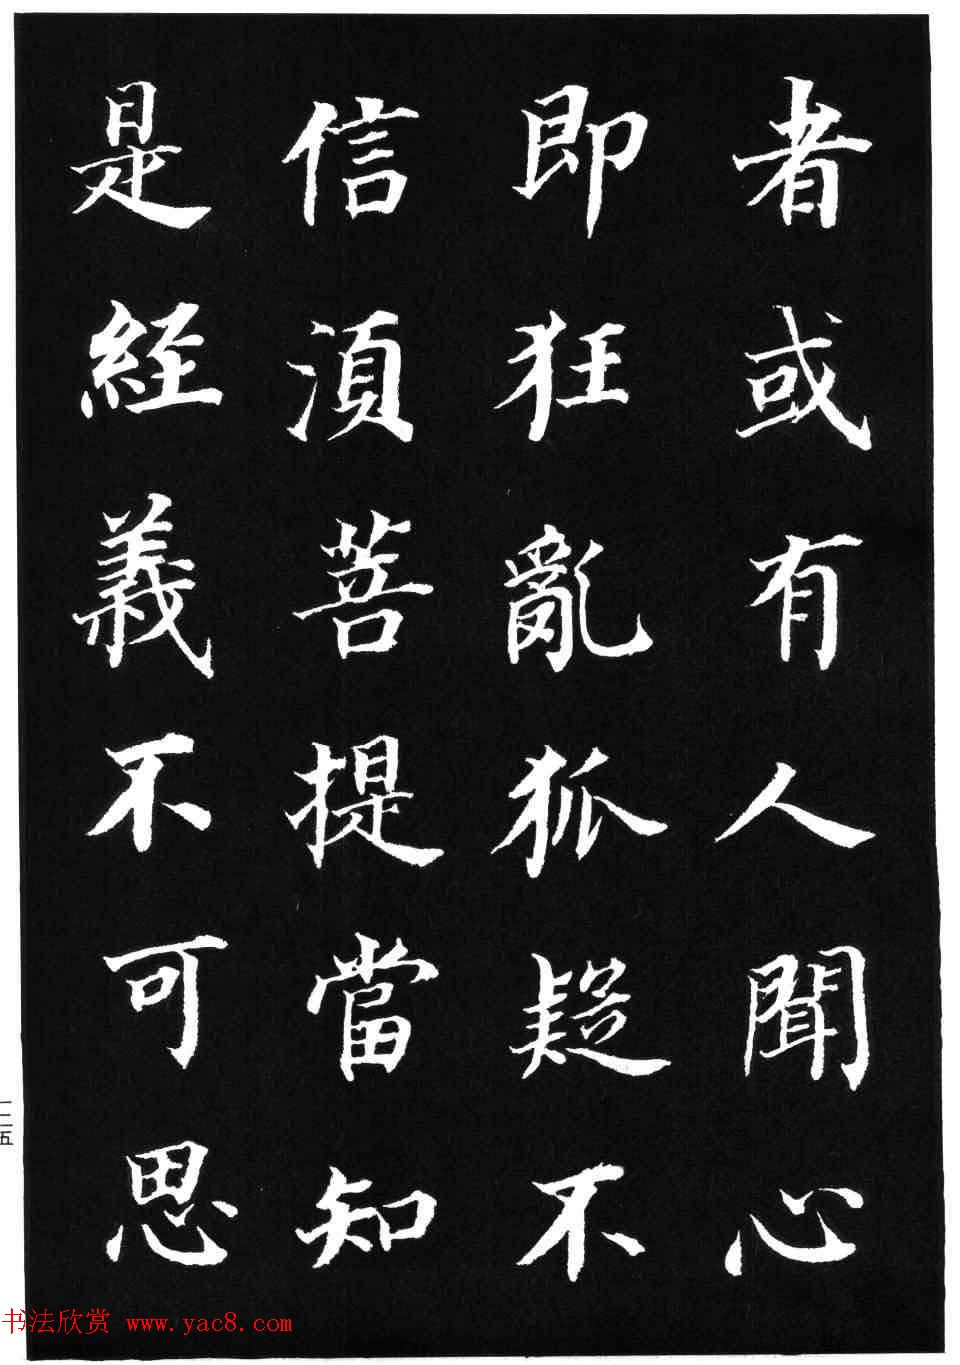 者或有人聞心
即狂亂狐疑不
信須菩提當知
是經義不可思
一二五
书法欣赏 www.yac8.com